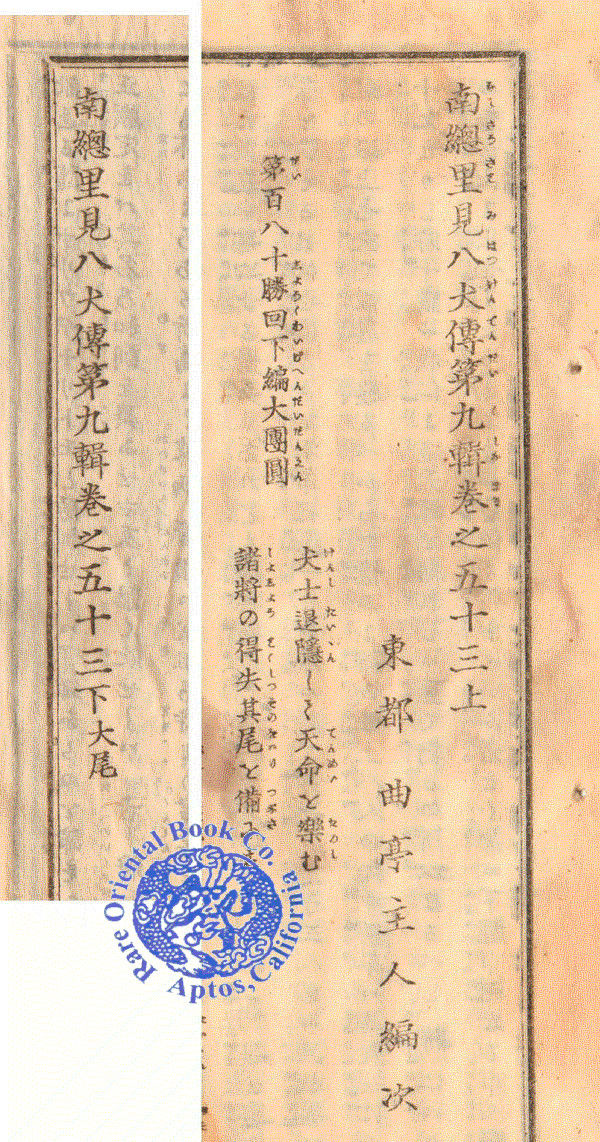 南總里見八犬傳第九輯卷之五十三上
東都曲亭主人編次
第百八十勝回下編大團圓
犬士退隱して天命を樂む
諸將の得失其尾を備
南總里見八犬傳第九輯卷之五十三下大尾
Rare Oriental Book Co.
Aptos, California